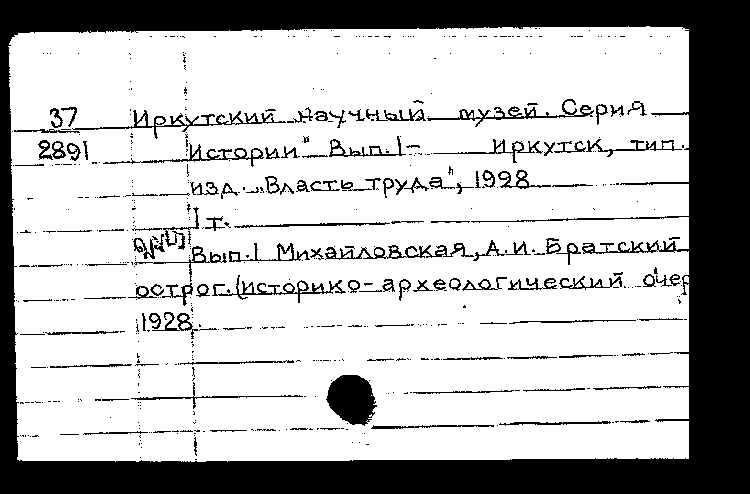 37 Иркутский научный музей. Серия
2891 Истории" Вып.1- Иркутск, тип.
изд. „Власть труда", 1928
1 т.
Вып.1 Михайловская, А.И. Братский
острог. (историко-археологический очер
1928.